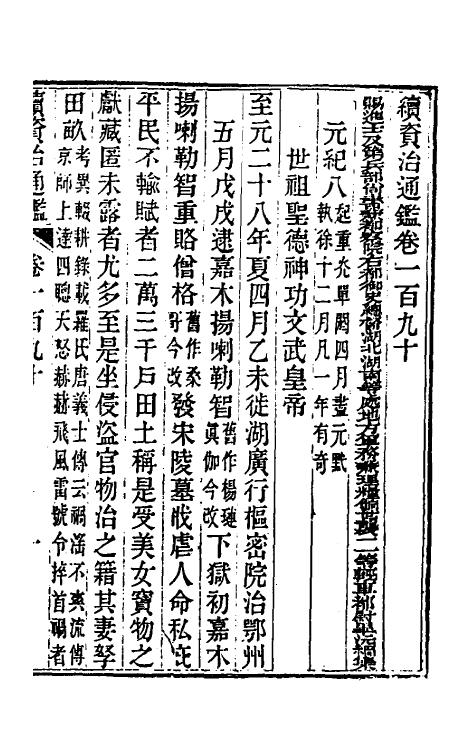 續資治通鑑卷一百九十
賜進士及第兵部尚書兼都察院右都御史總督湖北湖南等處地方軍務兼理糧餉世襲二等輕車都尉畢沅編集
元紀八起重光單閼四月盡元黓執徐十二月凡一年有奇
世祖聖德神功文武皇帝
至元二十八年夏四月乙未徙湖廣行樞密院治鄂州
五月戊戌逮嘉木揚喇勒智舊作楊璉真伽今改下獄初嘉木
揚喇勒智重賂僧格舊作桑哥今改發宋陵墓戕虐人命私庇
平民不輸賦者二萬三千戶田土稱是受美女寶物之
獻藏匿未露者尤多至是坐侵盜官物治之籍其妻孥
田畝考異輟耕錄載羅氏唐義士傳云禍淫不爽流傳京師上達四聰天怒赫赫飛風雷號令捽首禍者
續資治通鑑 卷一百九十 一